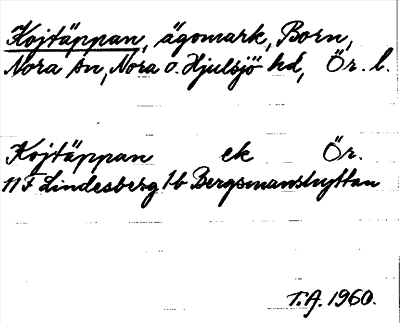 Kojtäppan, ägomark, Born,
Nora sn, Nora o. Hjulsjö hd, Ör. l.
Kojtäppan ek Ör.
11 F Lindesberg 1b Bergsmanshyttan
T.A. 1960.